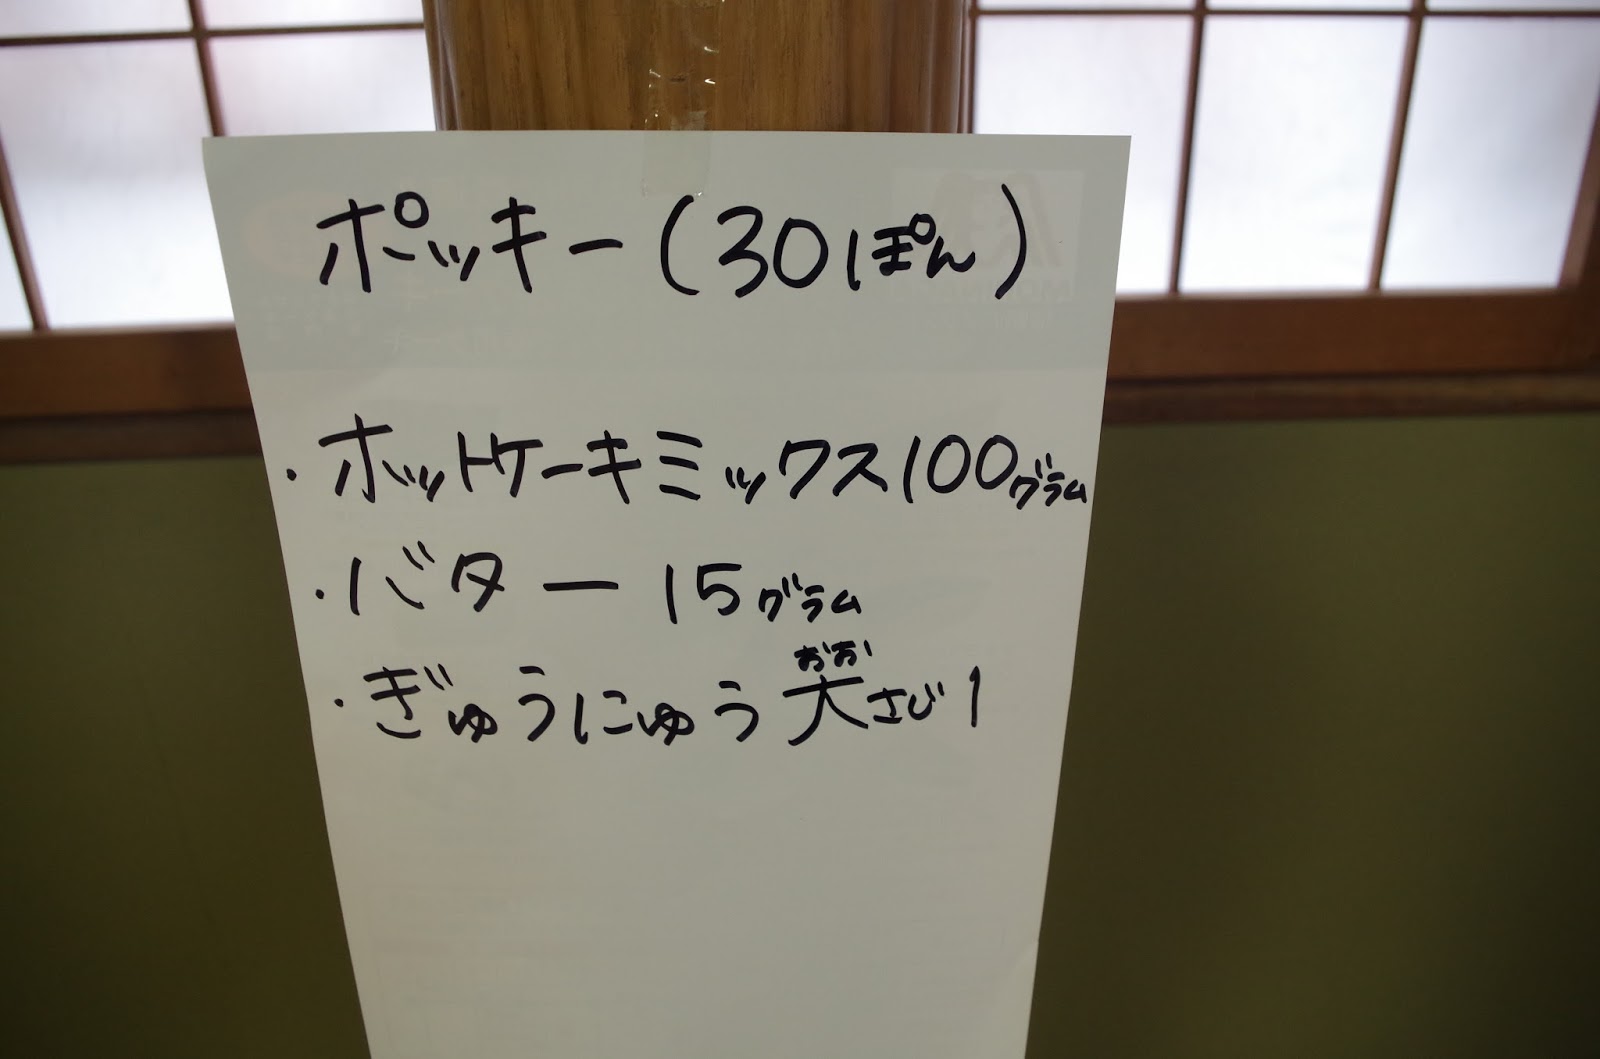 ポッキー(30ぽん)
・ホットケーキミックス100グラム
・バター 15グラム
・ぎゅうにゅう 大さじ1
おお